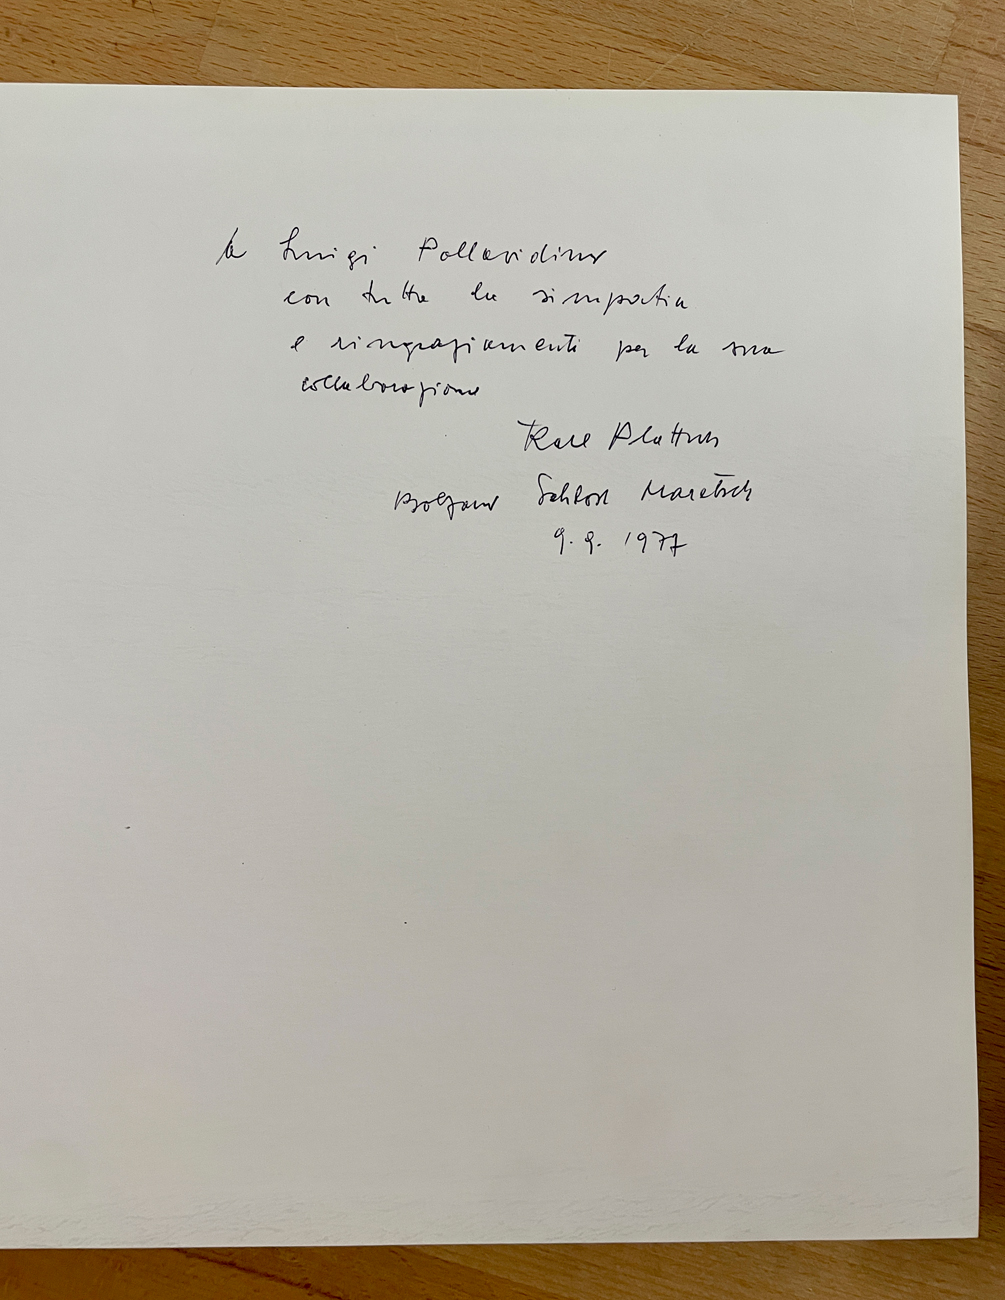 A Luigi Pallavidino
con tutta la simpatia
e ringraziamenti per la sua
collaborazione
Karl Plattner
Bolzano Schloss Maretsch
9. 9. 1977